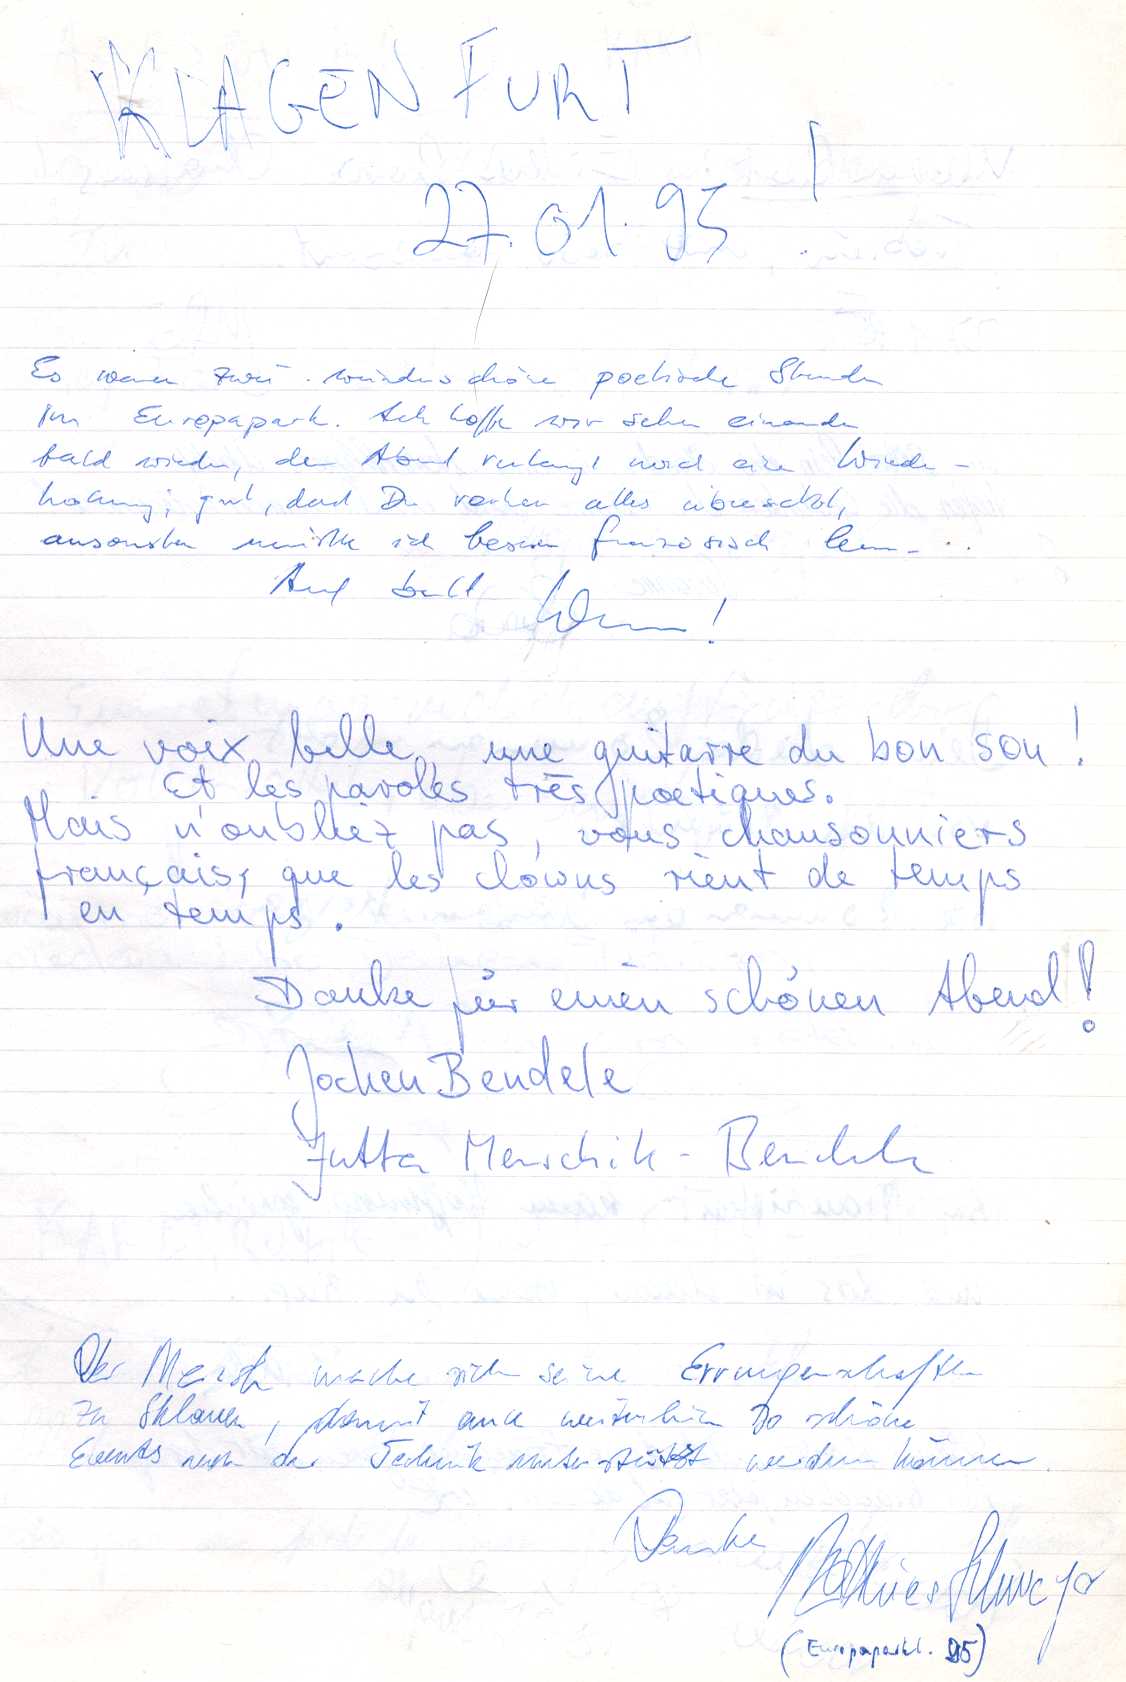 KLAGENFURT
27.01.95 !
Es waren zwei wunderschöne poetische Stunden
im Europapark. Ich hoffe wir sehen einander
bald wieder, der Abend verlangt nach eine Wieder-
holung; gut, daß Du vorher alles übersetzt,
ansonsten müßte ich besser französisch lern...
Auf bald
Une voix belle, une guitarre du bon son !
Et les paroles très poetiques.
Mais n'oubliez pas, vous chansonniers
français, que les clowns rient de temps
en temps.
Danke für einen schönen Abend!
Jochen Bendele
Jutta Menschik-Bendele
Der Mensch mache sich seine Errungenschaften
zu Sklaven, damit auch weiterhin so schöne
Events von der Technik unterstützt werden können.
Danke Mathias
(Europapark. 95)